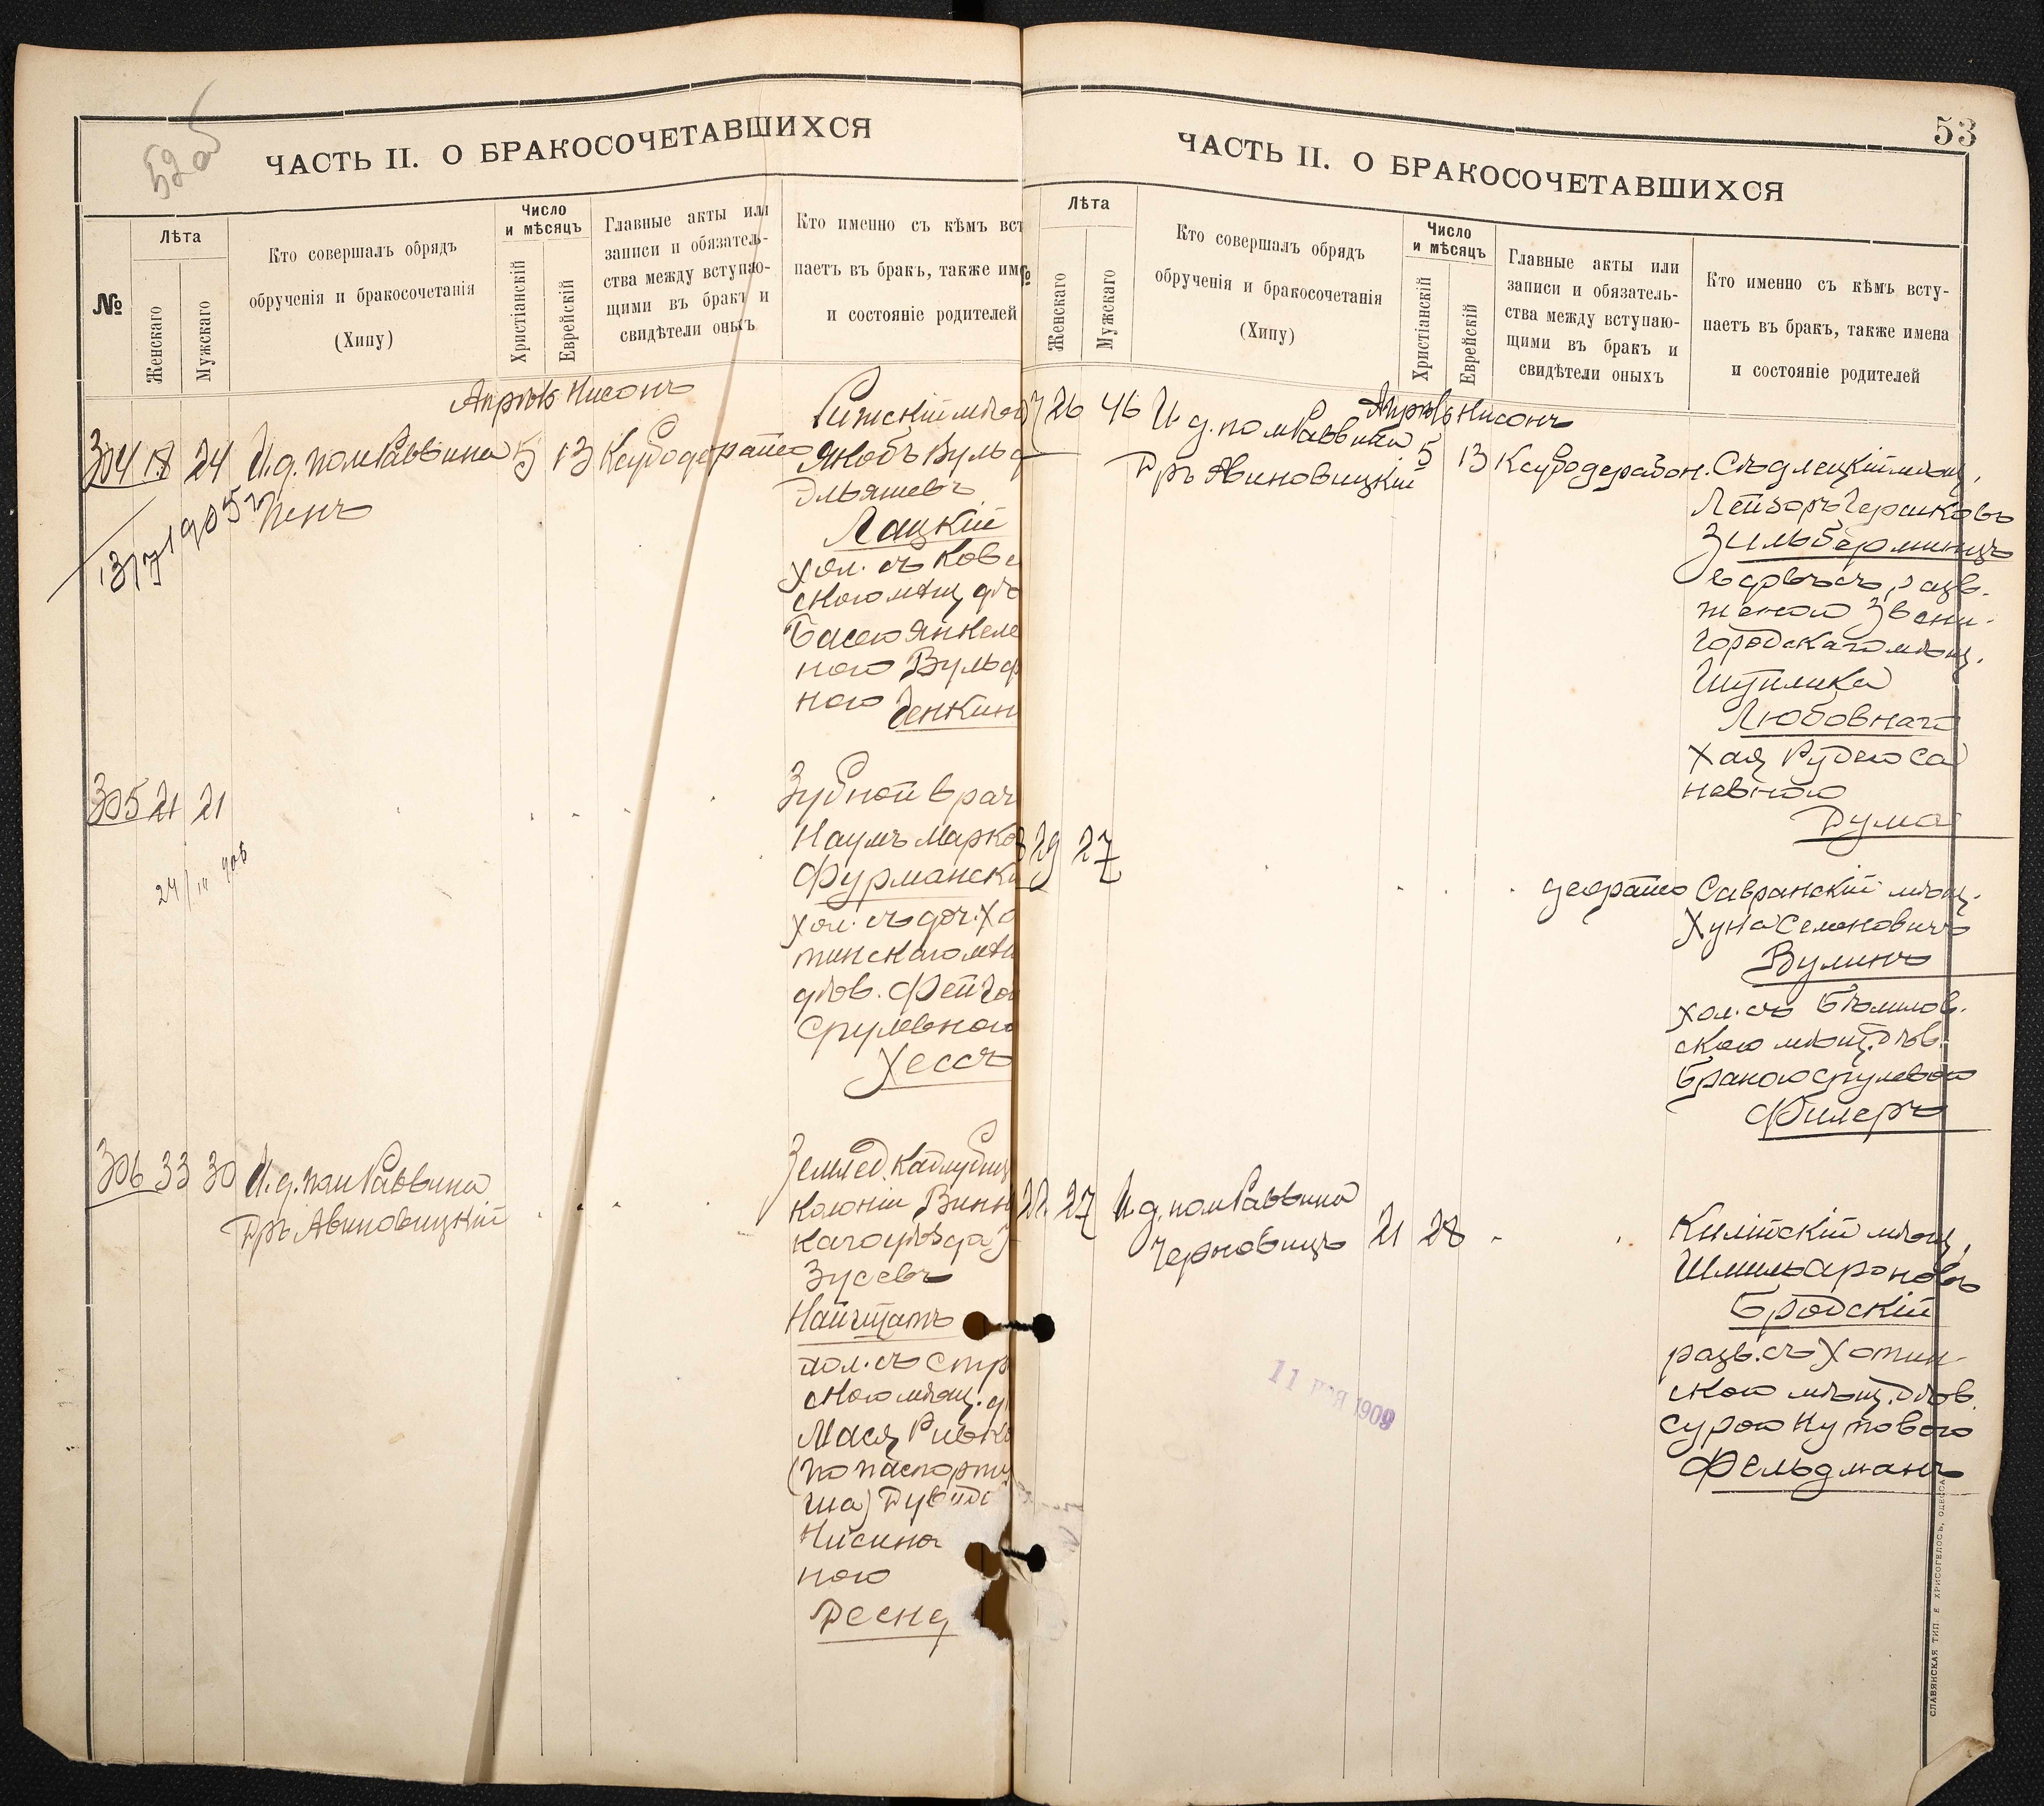 52об
ЧАСТЬ II. О БРАКОСОЧЕТАВШИХСЯ
№
Лѣта
Женскаго
Мужскаго
Кто совершалъ обрядъ
обрученія и бракосочетанія
(Хипу)
Число
и мѣсяцъ
Христіанскій
Еврейскій
Главные акты или
записи и обязатель-
ства между вступаю-
щими въ бракъ и
свидѣтели оныхъ
Кто именно съ кѣмъ вст
паетъ въ бракъ, также име
и состояніе родителей
Апрѣль Нисонъ
304 18 24 И.д. пом Раввина 5 13
Пенъ
13/7 1905 г
Рижскій мѣщ
Якобъ Вульф
Эльяшевъ
Лацкій
хол. съ Кове
скою мѣщ. дѣв
Басею Янкеле
ною Вульф
ною Генкин
305 21 21
Зубной врач
Наумъ Марко
Фурмански
хол. съ доч. Хо
тинскаго мѣщ
дѣв. Фейгою
Срулевною
Хессъ
306 33 30 И.д. пом Раввина
Дръ Авиновицкій
Землед.
колоніи Винн
каго уѣзда
Зусевъ
Найштатъ
хол. съ
скою мѣщ. д
Мася Ривка
(по паспорту
ша)
Нисино
ною
Десня
53
ЧАСТЬ II. О БРАКОСОЧЕТАВШИХСЯ
Лѣта
Женскаго
Мужскаго
Кто совершалъ обрядъ
обрученія и бракосочетанія
(Хипу)
Число
и мѣсяцъ
Христіанскій
Еврейскій
Главные акты или
записи и обязатель-
ства между вступаю-
щими въ бракъ и
свидѣтели оныхъ
Кто именно съ кѣмъ всту-
паетъ въ бракъ, также имена
и состояніе родителей
Апрѣль Нисонъ
7 26 46 И д. пом Раввина 5 13
Дръ Авиновицкій
Сѣдлецкій мѣщ.
Лейзоръ Гершковъ
Зильберминцъ
вдовъ съ разв.
женою Звени-
городскаго мѣщ.
Шуплика
Любовнаго
Хая Рудею Са
невною
Дума
8 29 27
Савранскій мѣщ.
Хуна Семеновичъ
Вулинъ
хол. съ
скою мѣщ. дѣв.
Браною Срулевою
Филеръ
22 27 И д. пом Раввина 21 28
Черновицъ
Килійскій мѣщ.
Шмиль Ароновъ
Бродскій
разв. съ Хотин-
скою мѣщ. дѣв.
Сурою Нутовою
Фельдманъ
1909
СЛАВЯНСКАЯ ТИП. Е. ХРИСОГЕЛОСЪ, ОДЕССА